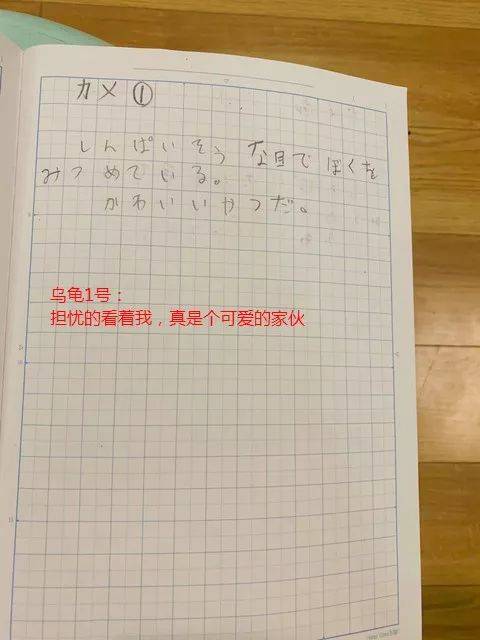 カメ①
しんぱいそうな目でぼくを
みつめている。
かわいいやつだ。
乌龟1号：
担忧的看着我，真是个可爱的家伙